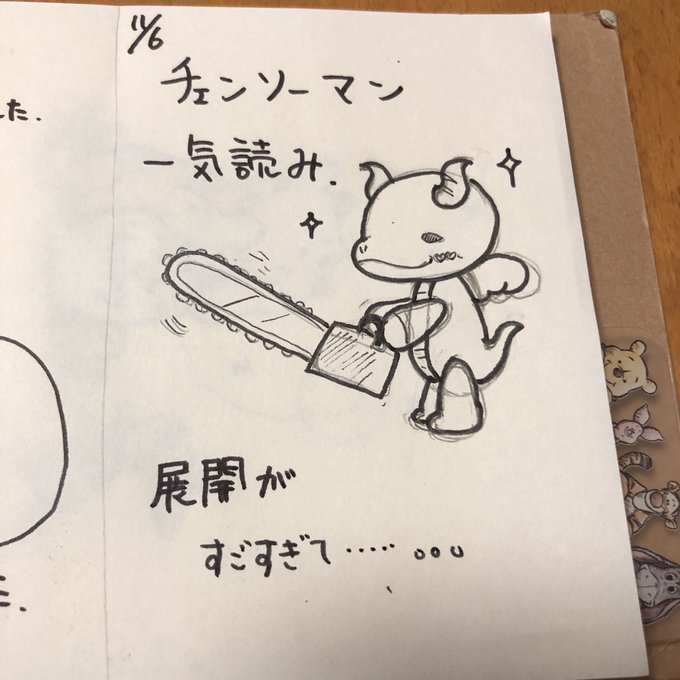 11/6
チェンソーマン
一気読み.
した.
展開が
すごすぎて……。。。
た.